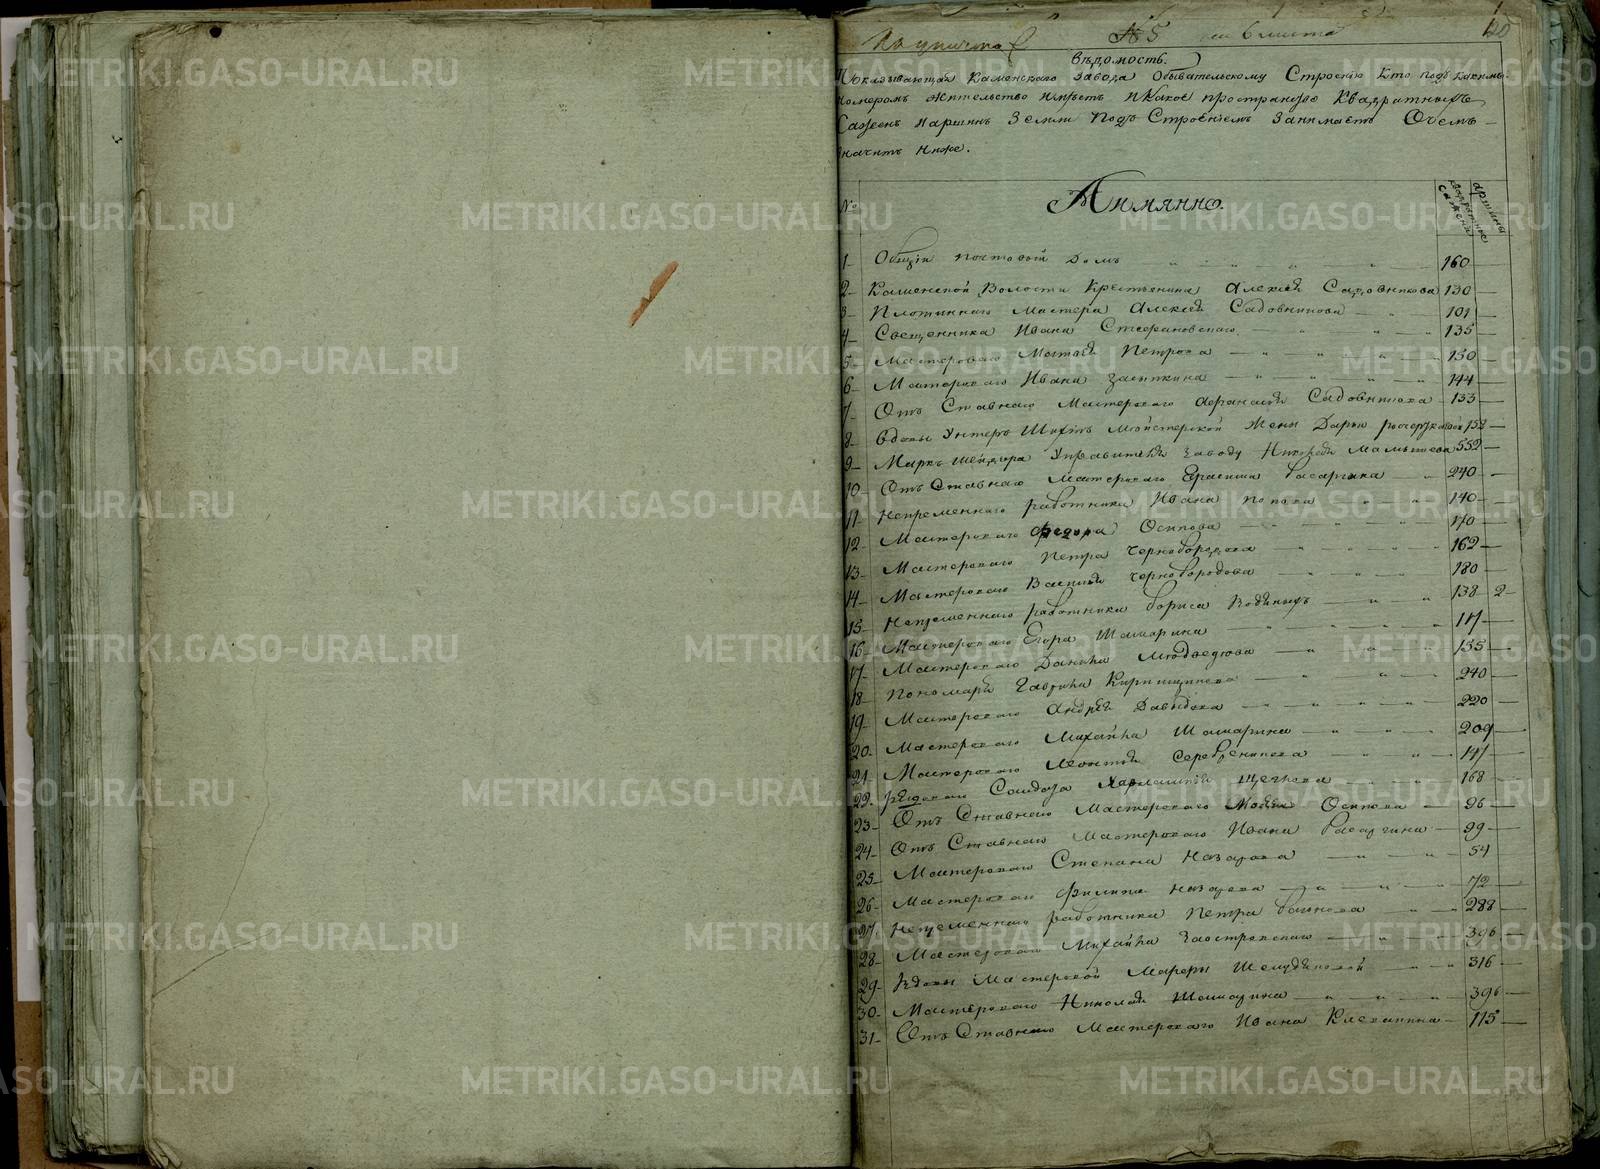 № 5
20
Ведомость.
Показывающая Каменского завода Обывательскому Строению Кто подъ какимъ
номеромъ жительство имѣетъ и Какое пространство Квадратныхъ
Саженъ и аршинъ Земли подъ Строениемъ занимаетъ О чемъ
значитъ ниже.
№ Аимянно. Квадратные сажени аршины
1 Общiй почтовой домъ 160
2 Каменской Волости Крестьянина Алексея Садовникова 130
3 Плотиннаго Мастера Алексея Садовникова 101
4 Священника Ивана Стефановскаго 135
5 Мастероваго Петрова 150
6 Мастероваго Ивана 144
7 Отъ Ставнаго Мастероваго Афанасья Садовникова 133
8 Вдовы Унтеръ Шихтъ Мейстерской Жены Дарьи 152
9 Маркшейдера Управителя Заводу Николая Малышева 552
10 Отъ Ставнаго Мастероваго Басаргина 240
11 Непременнаго работника Ивана Попова 140
12 Мастероваго Федора Осипова 170
13 Мастероваго Петра Чернобородова 162
14 Мастероваго Василья Чернобородова 180
15 Непременнаго работника Бориса 138 2
16 Мастероваго Егора Шамарина 117
17 Мастероваго Данила Медведева 155
18 Пономаря Гаврила Кирпищикова 240
19 Мастероваго Андрея Давыдова 220
20 Мастероваго Михайла Шамарина 209
21 Мастероваго Леонтья Серебреникова 147
22 Солдата Харлампия Щеткова 168
23 Отъ Ставнаго Мастероваго Осипова 96
24 Отъ Ставнаго Мастероваго Ивана Басаргина 99
25 Мастероваго Степана Назарова 54
26 Мастероваго Филипа Назарова 72
27 Непременнаго работника Петра 288
28 Мастероваго Михайла Заостровскаго 396
29 Вдовы Мастерской Марфы 316
30 Мастероваго Николая Шамарина 396
31 Отъ Ставнаго Мастероваго Ивана Клевакина 115
METRIKI.GASO-URAL.RU